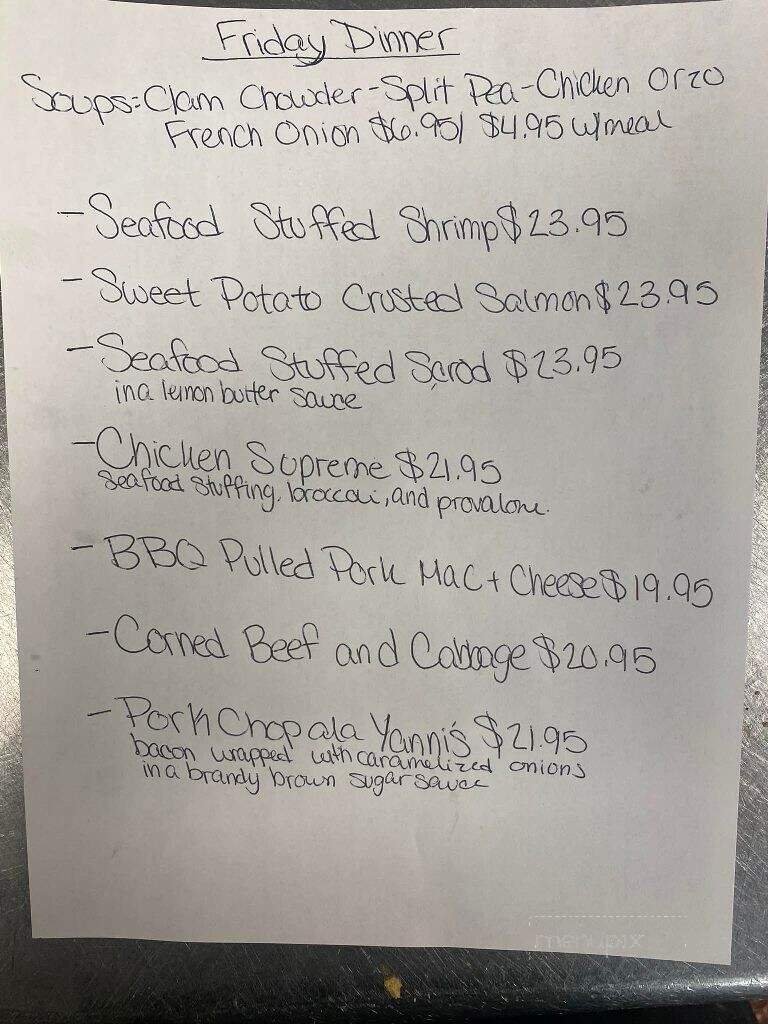 Friday Dinner
Soups: Clam Chowder - Split Pea - Chicken Orzo
French Onion $6.95/ $4.95 w/meal
- Seafood Stuffed Shrimp $23.95
- Sweet Potato Crusted Salmon $23.95
- Seafood Stuffed Scrod $23.95
in a lemon butter sauce
- Chicken Supreme $21.95
Seafood Stuffing, broccoli, and provalone.
- BBQ Pulled Pork Mac + Cheese $19.95
- Corned Beef and Cabbage $20.95
- Pork Chop ala Yanni's $21.95
bacon wrapped with caramelized onions
in a brandy brown sugar sauce
menupix